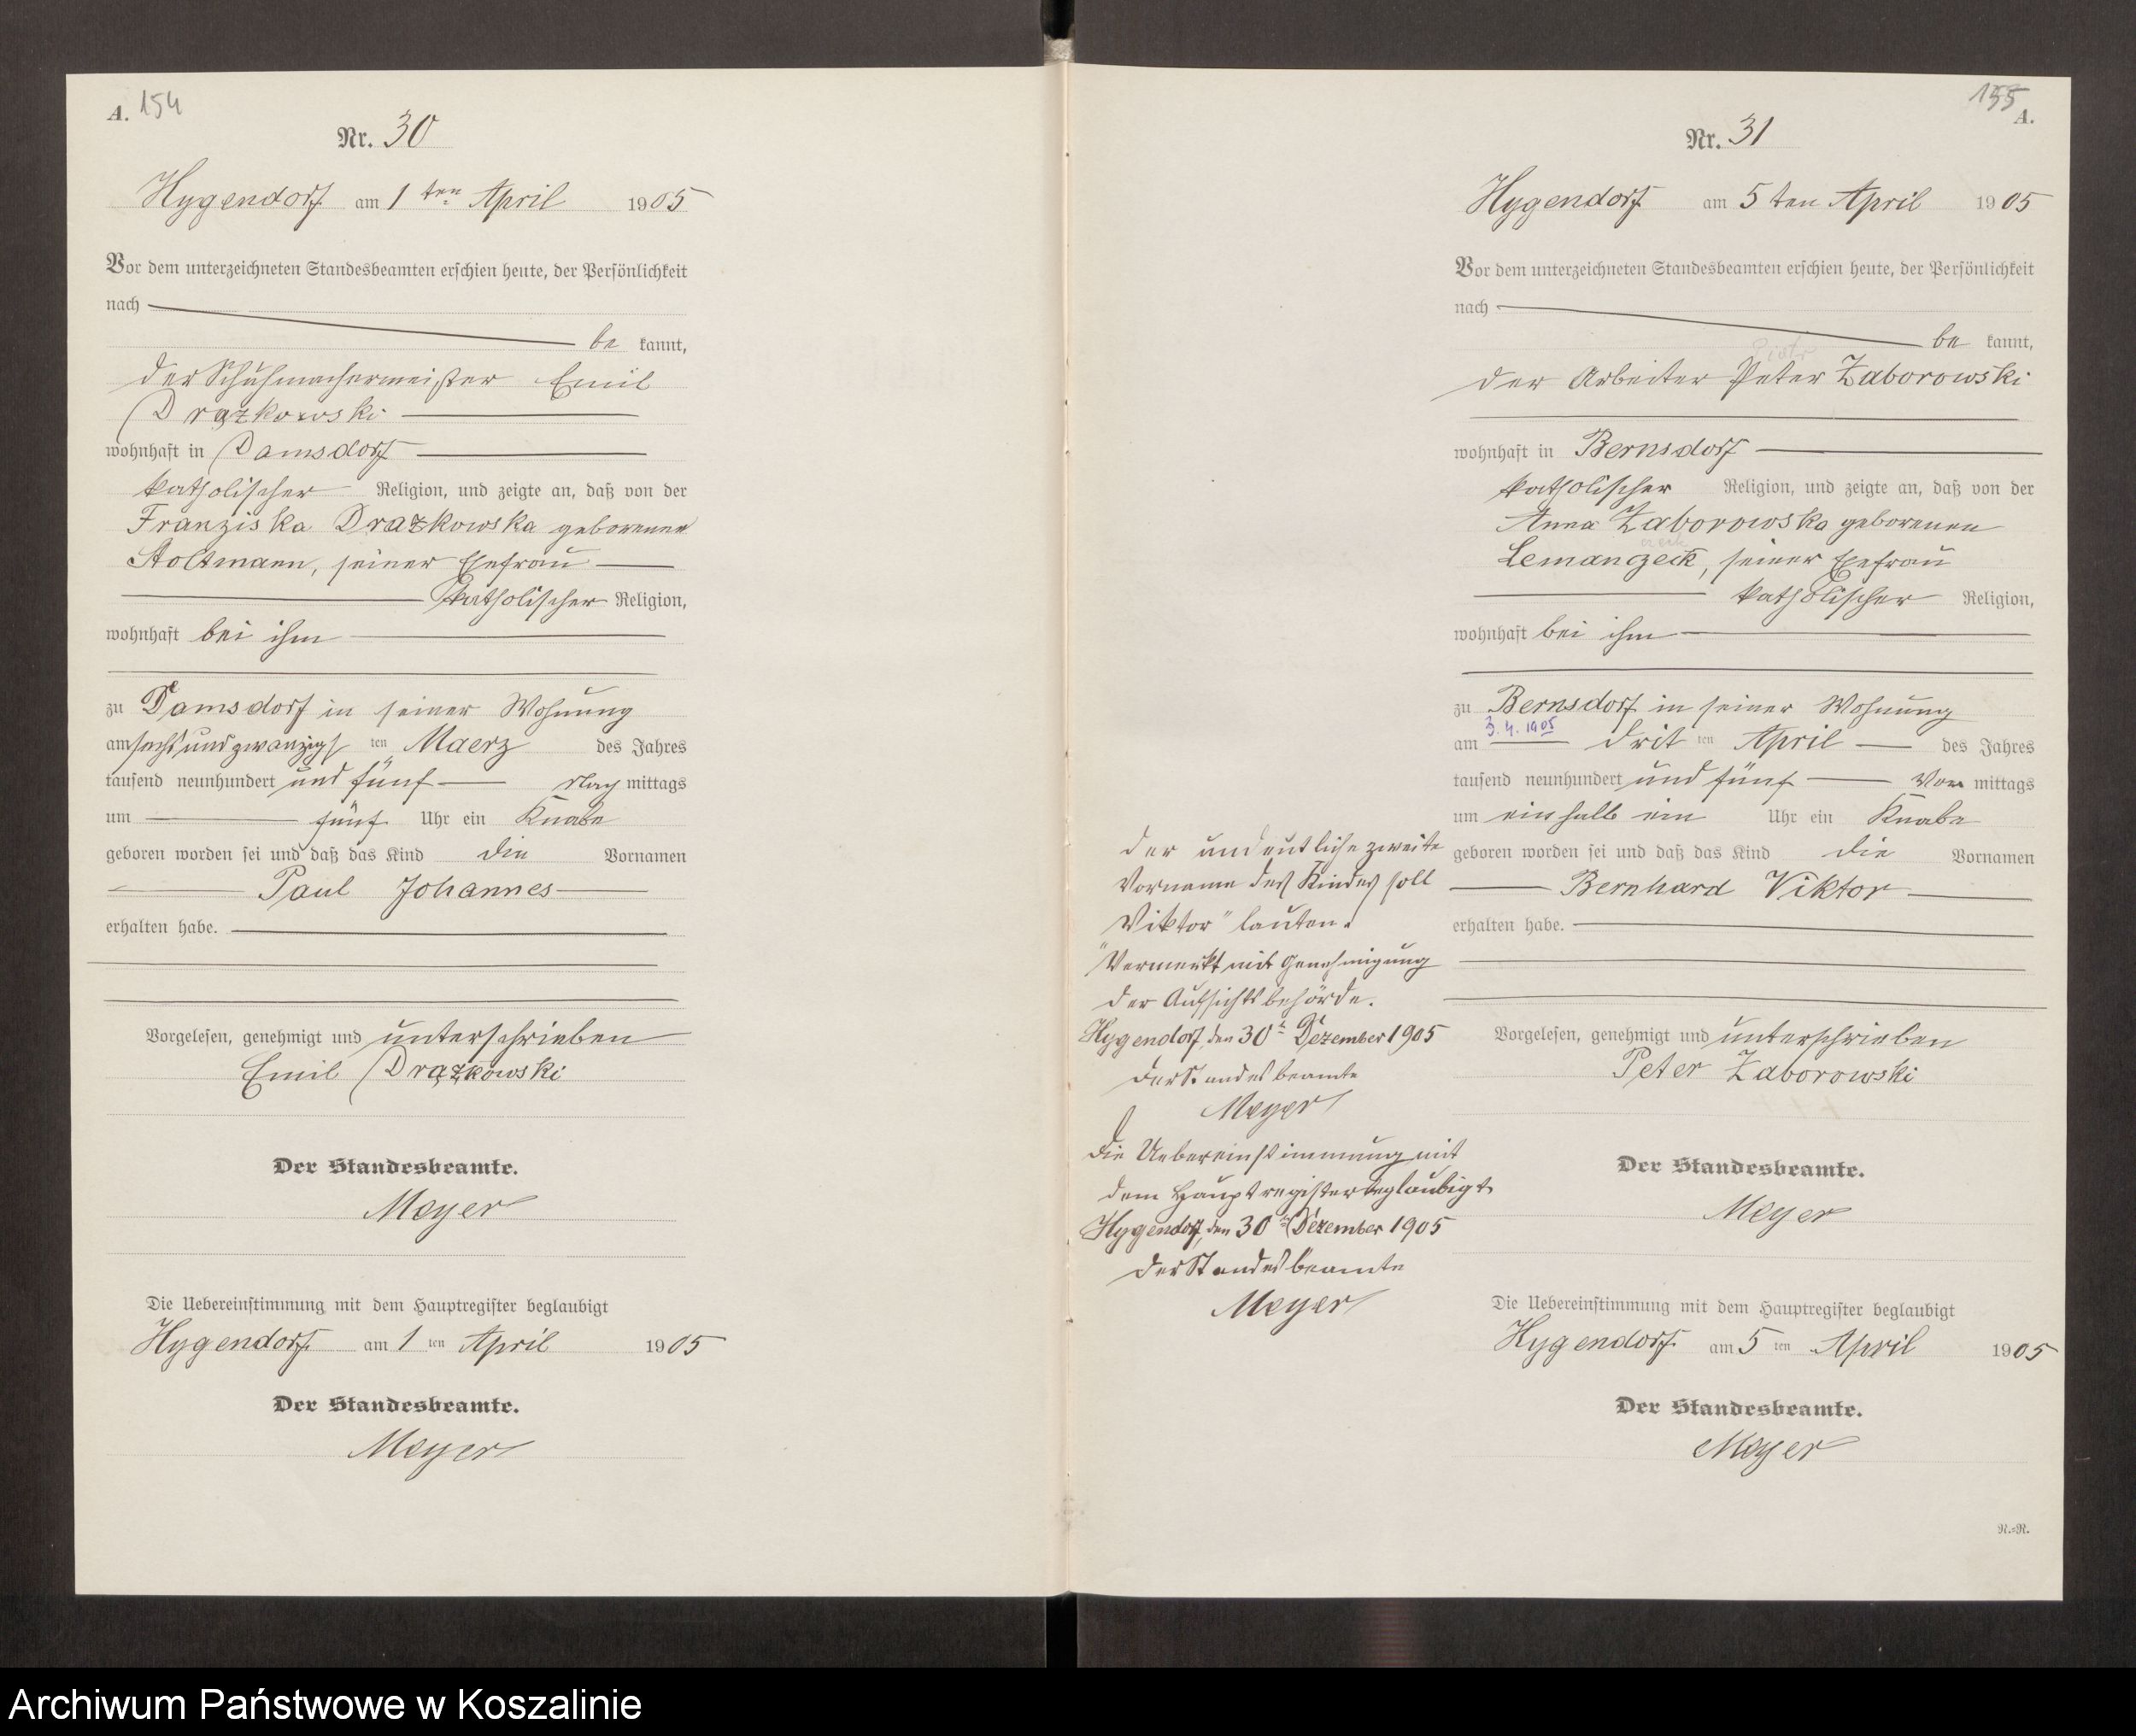 A. 154
Nr. 30
Hygendorf am 1 ten April 1905
Vor dem unterzeichneten Standesbeamten erschien heute, der Persönlichkeit
nach
be kannt,
der Schuhmachermeister Emil
Drązkowski
wohnhaft in Damsdorf
katholischer Religion, und zeigte an, daß von der
Franziska Drązkowska geborenen
Stoltmann, seiner Ehefrau
katholischer Religion,
wohnhaft bei ihm
zu Damsdorf in seiner Wohnung
am sechsundzwanzigs ten Maerz des Jahres
tausend neunhundert und fünf Nach mittags
um fünf Uhr ein Knabe
geboren worden sei und daß das Kind die Vornamen
Paul Johannes
erhalten habe.
Vorgelesen, genehmigt und unterschrieben
Emil Drązkowski
Der Standesbeamte.
Meyer
Die Uebereinstimmung mit dem Hauptregister beglaubigt
Hygendorf am 1 ten April 1905
Der Standesbeamte.
Meyer
155
A.
Nr. 31
Hygendorf am 5 ten April 1905
Vor dem unterzeichneten Standesbeamten erschien heute, der Persönlichkeit
nach
be kannt,
Piotr
der Arbeiter Peter Zaborowski
wohnhaft in Bernsdorf
katholischer Religion, und zeigte an, daß von der
Anna Zaborowska geborenen
Lemanczeck, seiner Ehefrau
katholischer Religion,
wohnhaft bei ihm
zu Bernsdorf in seiner Wohnung
3. 4. 1905
am drit ten April des Jahres
tausend neunhundert und fünf Vor mittags
um einhalb ein Uhr ein Knabe
geboren worden sei und daß das Kind die Vornamen
Bernhard Viktor
erhalten habe.
Vorgelesen, genehmigt und unterschrieben
Peter Zaborowski
Der Standesbeamte.
Meyer
Die Uebereinstimmung mit dem Hauptregister beglaubigt
Hygendorf am 5 ten April 1905
Der Standesbeamte.
Meyer
R.=R.
Der undeutliche zweite
Vorname des Kindes soll
„Viktor" lauten.
Vermerkt mit Genehmigung
der Aufsichtsbehörde.
Hygendorf, den 30t Dezember 1905
Der Standesbeamte
Meyer
Die Uebereinstimmung mit
dem Hauptregister beglaubigt
Hygendorf, den 30ten Dezember 1905
Der Standesbeamte
Meyer
Archiwum Państwowe w Koszalinie